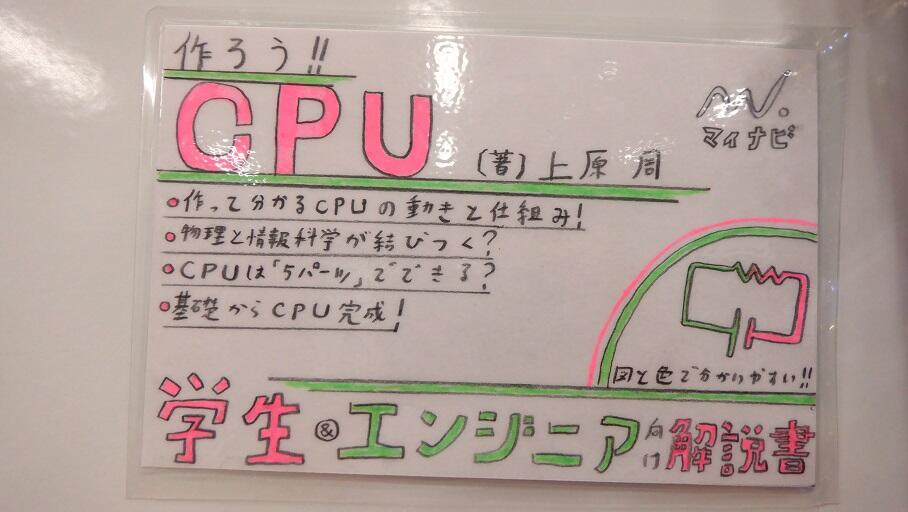 作ろう!!
CPU
(著)上原 周
マイナビ
作って分かるCPUの動きと仕組み!
物理と情報科学が結びつく?
CPUは「5パーツ」でできる?
基礎からCPU完成!
図と色で分かりやすい!!
学生&エンジニア向け解説書